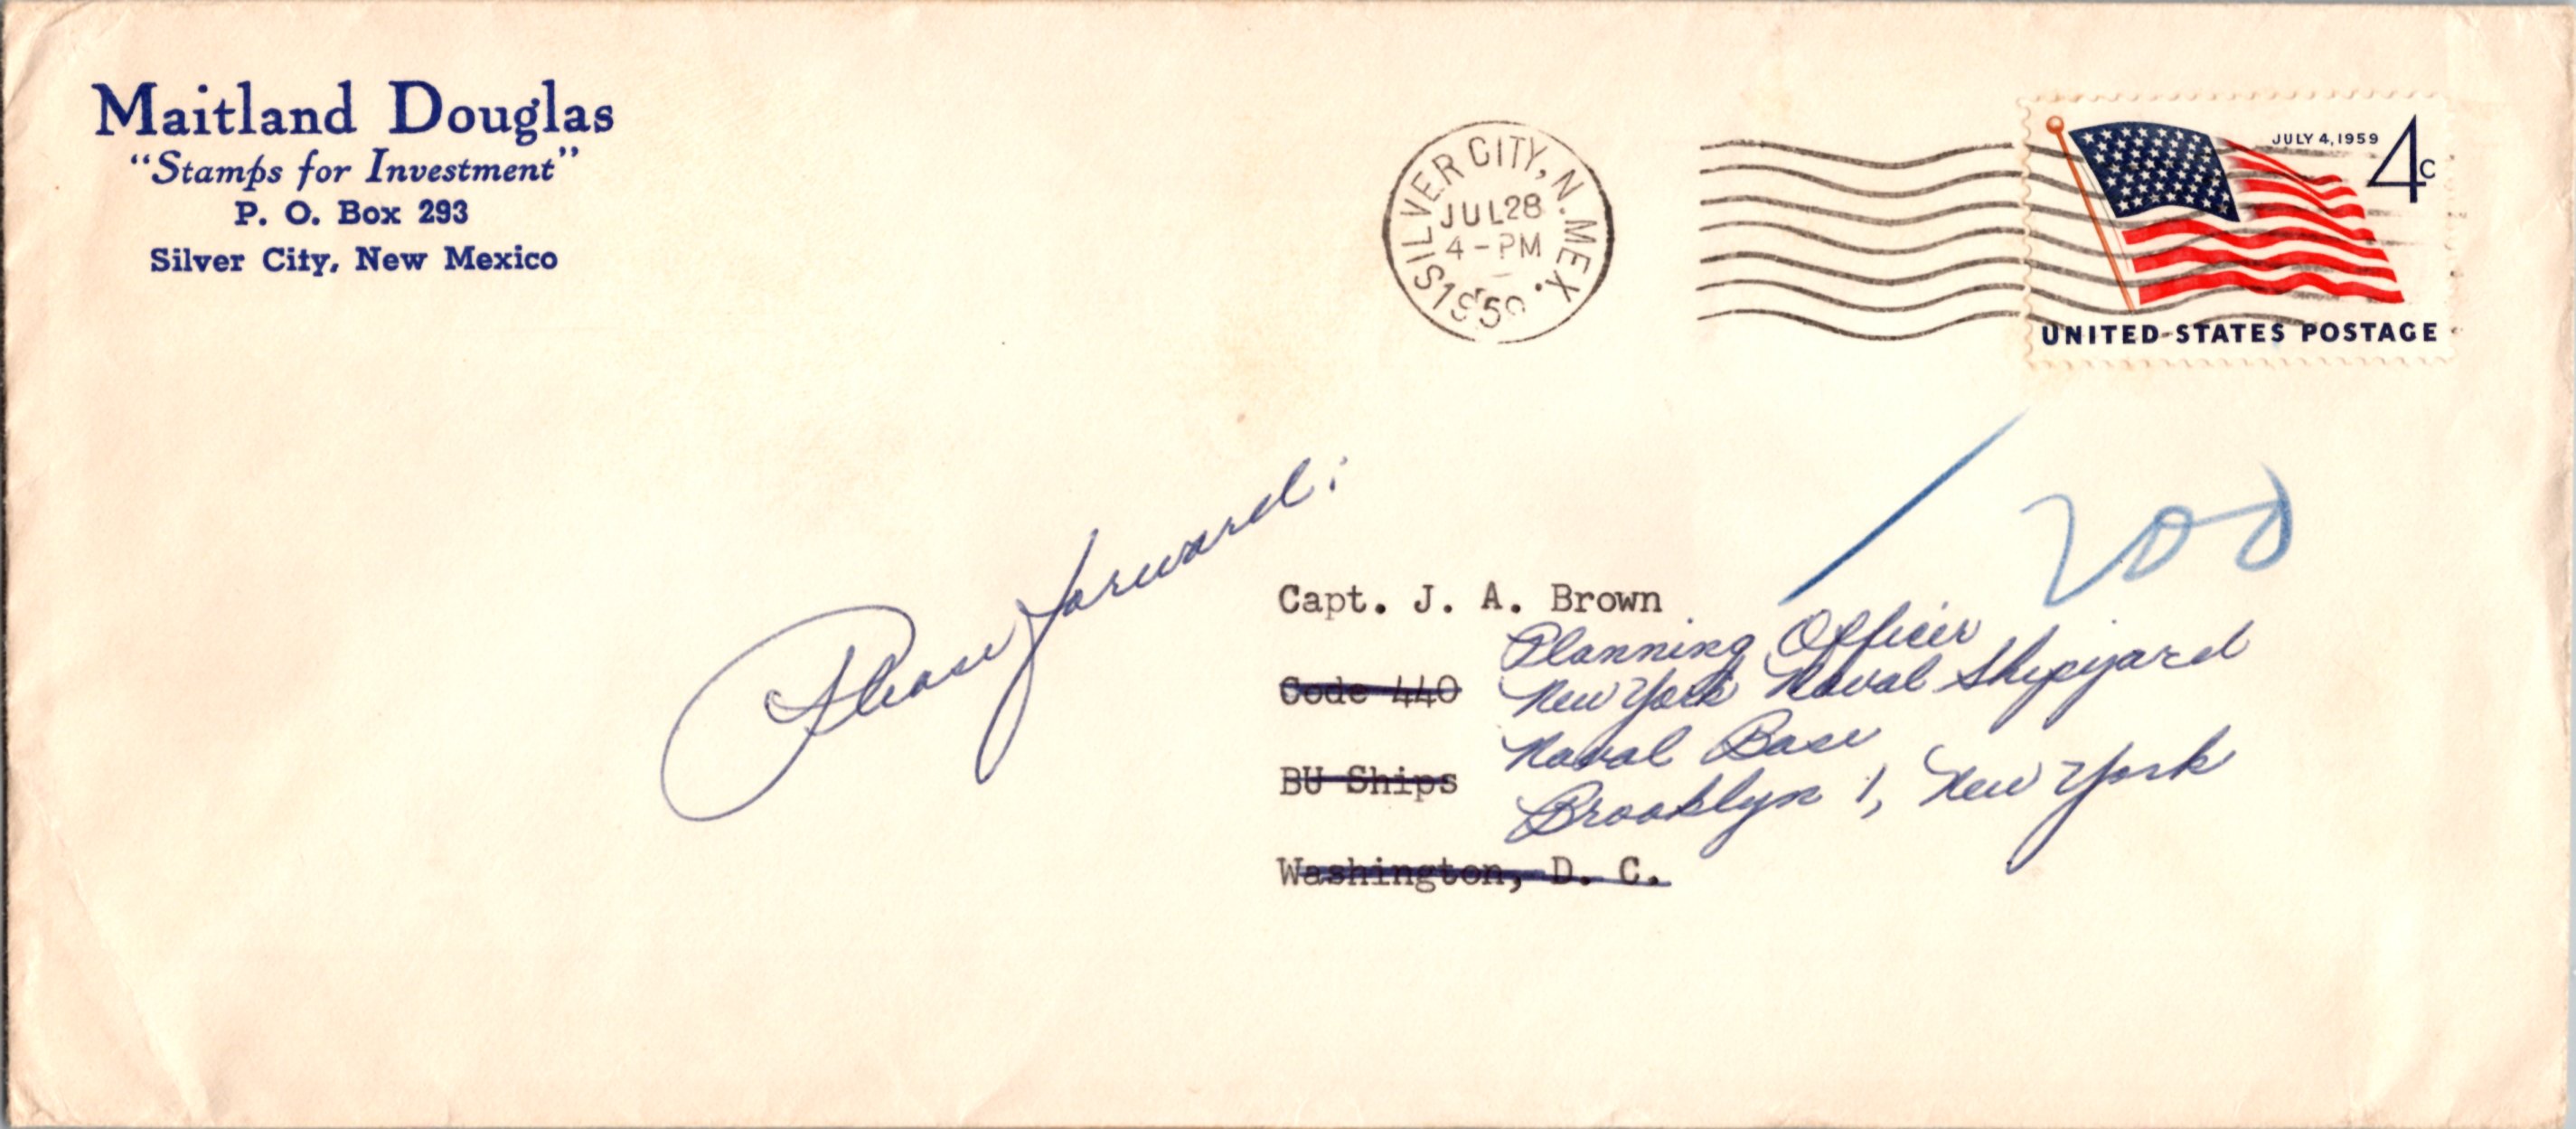 Maitland Douglas
"Stamps for Investment"
P. O. Box 293
Silver City, New Mexico
SILVER CITY, N. MEX.
JUL 28
4-PM
1959
JULY 4, 1959
4c
UNITED STATES POSTAGE
Please forward:
200
Capt. J. A. Brown
Planning Officer
Code 440
New York Naval Shipyard
Naval Base
BU Ships
Brooklyn 1, New York
Washington, D. C.